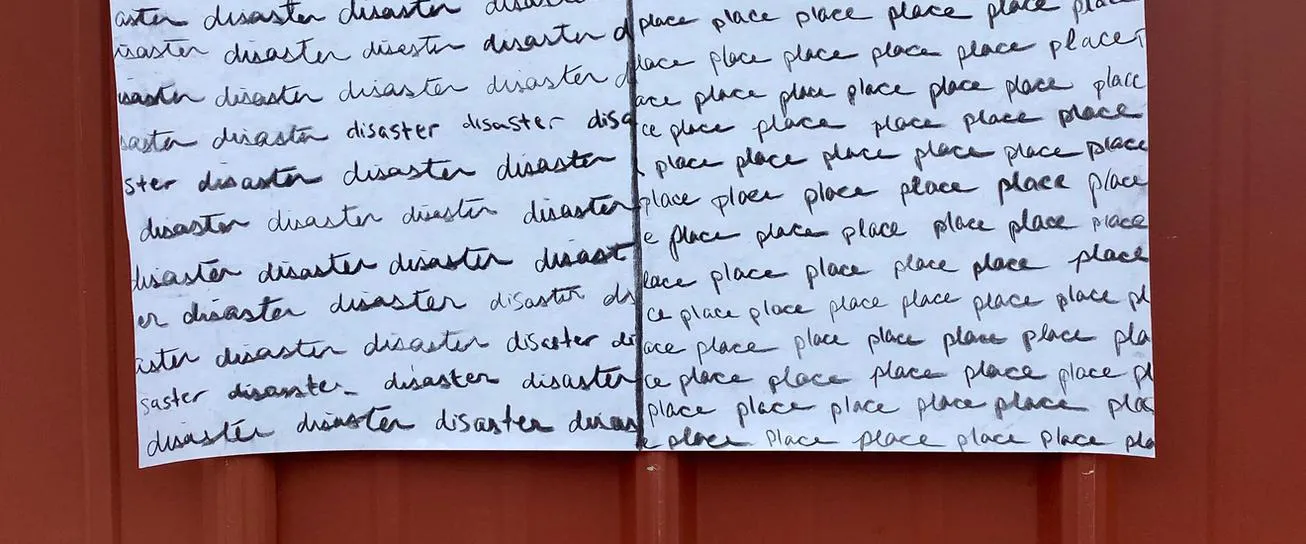 aster disaster disaster disas
isaster disaster disaster disaster d
isaster disaster disaster disaster d
saster disaster disaster disaster disa
ster disaster disaster disaster
disaster disaster disaster disaster
disaster disaster disaster disast
er disaster disaster disaster dis
aster disaster disaster disaster di
saster disaste disaster disaster
disaster disaster disaster disas
place place place place place plac
lace place place place place place
ace place place place place place
ce place place place place place
place place place place place place
place place place place place place
e place place place place place place
lace place place place place place
ce place place place place place place pl
ace place place place place place pla
ce place place place place place pl
place place place place place plac
e place place place place place pla